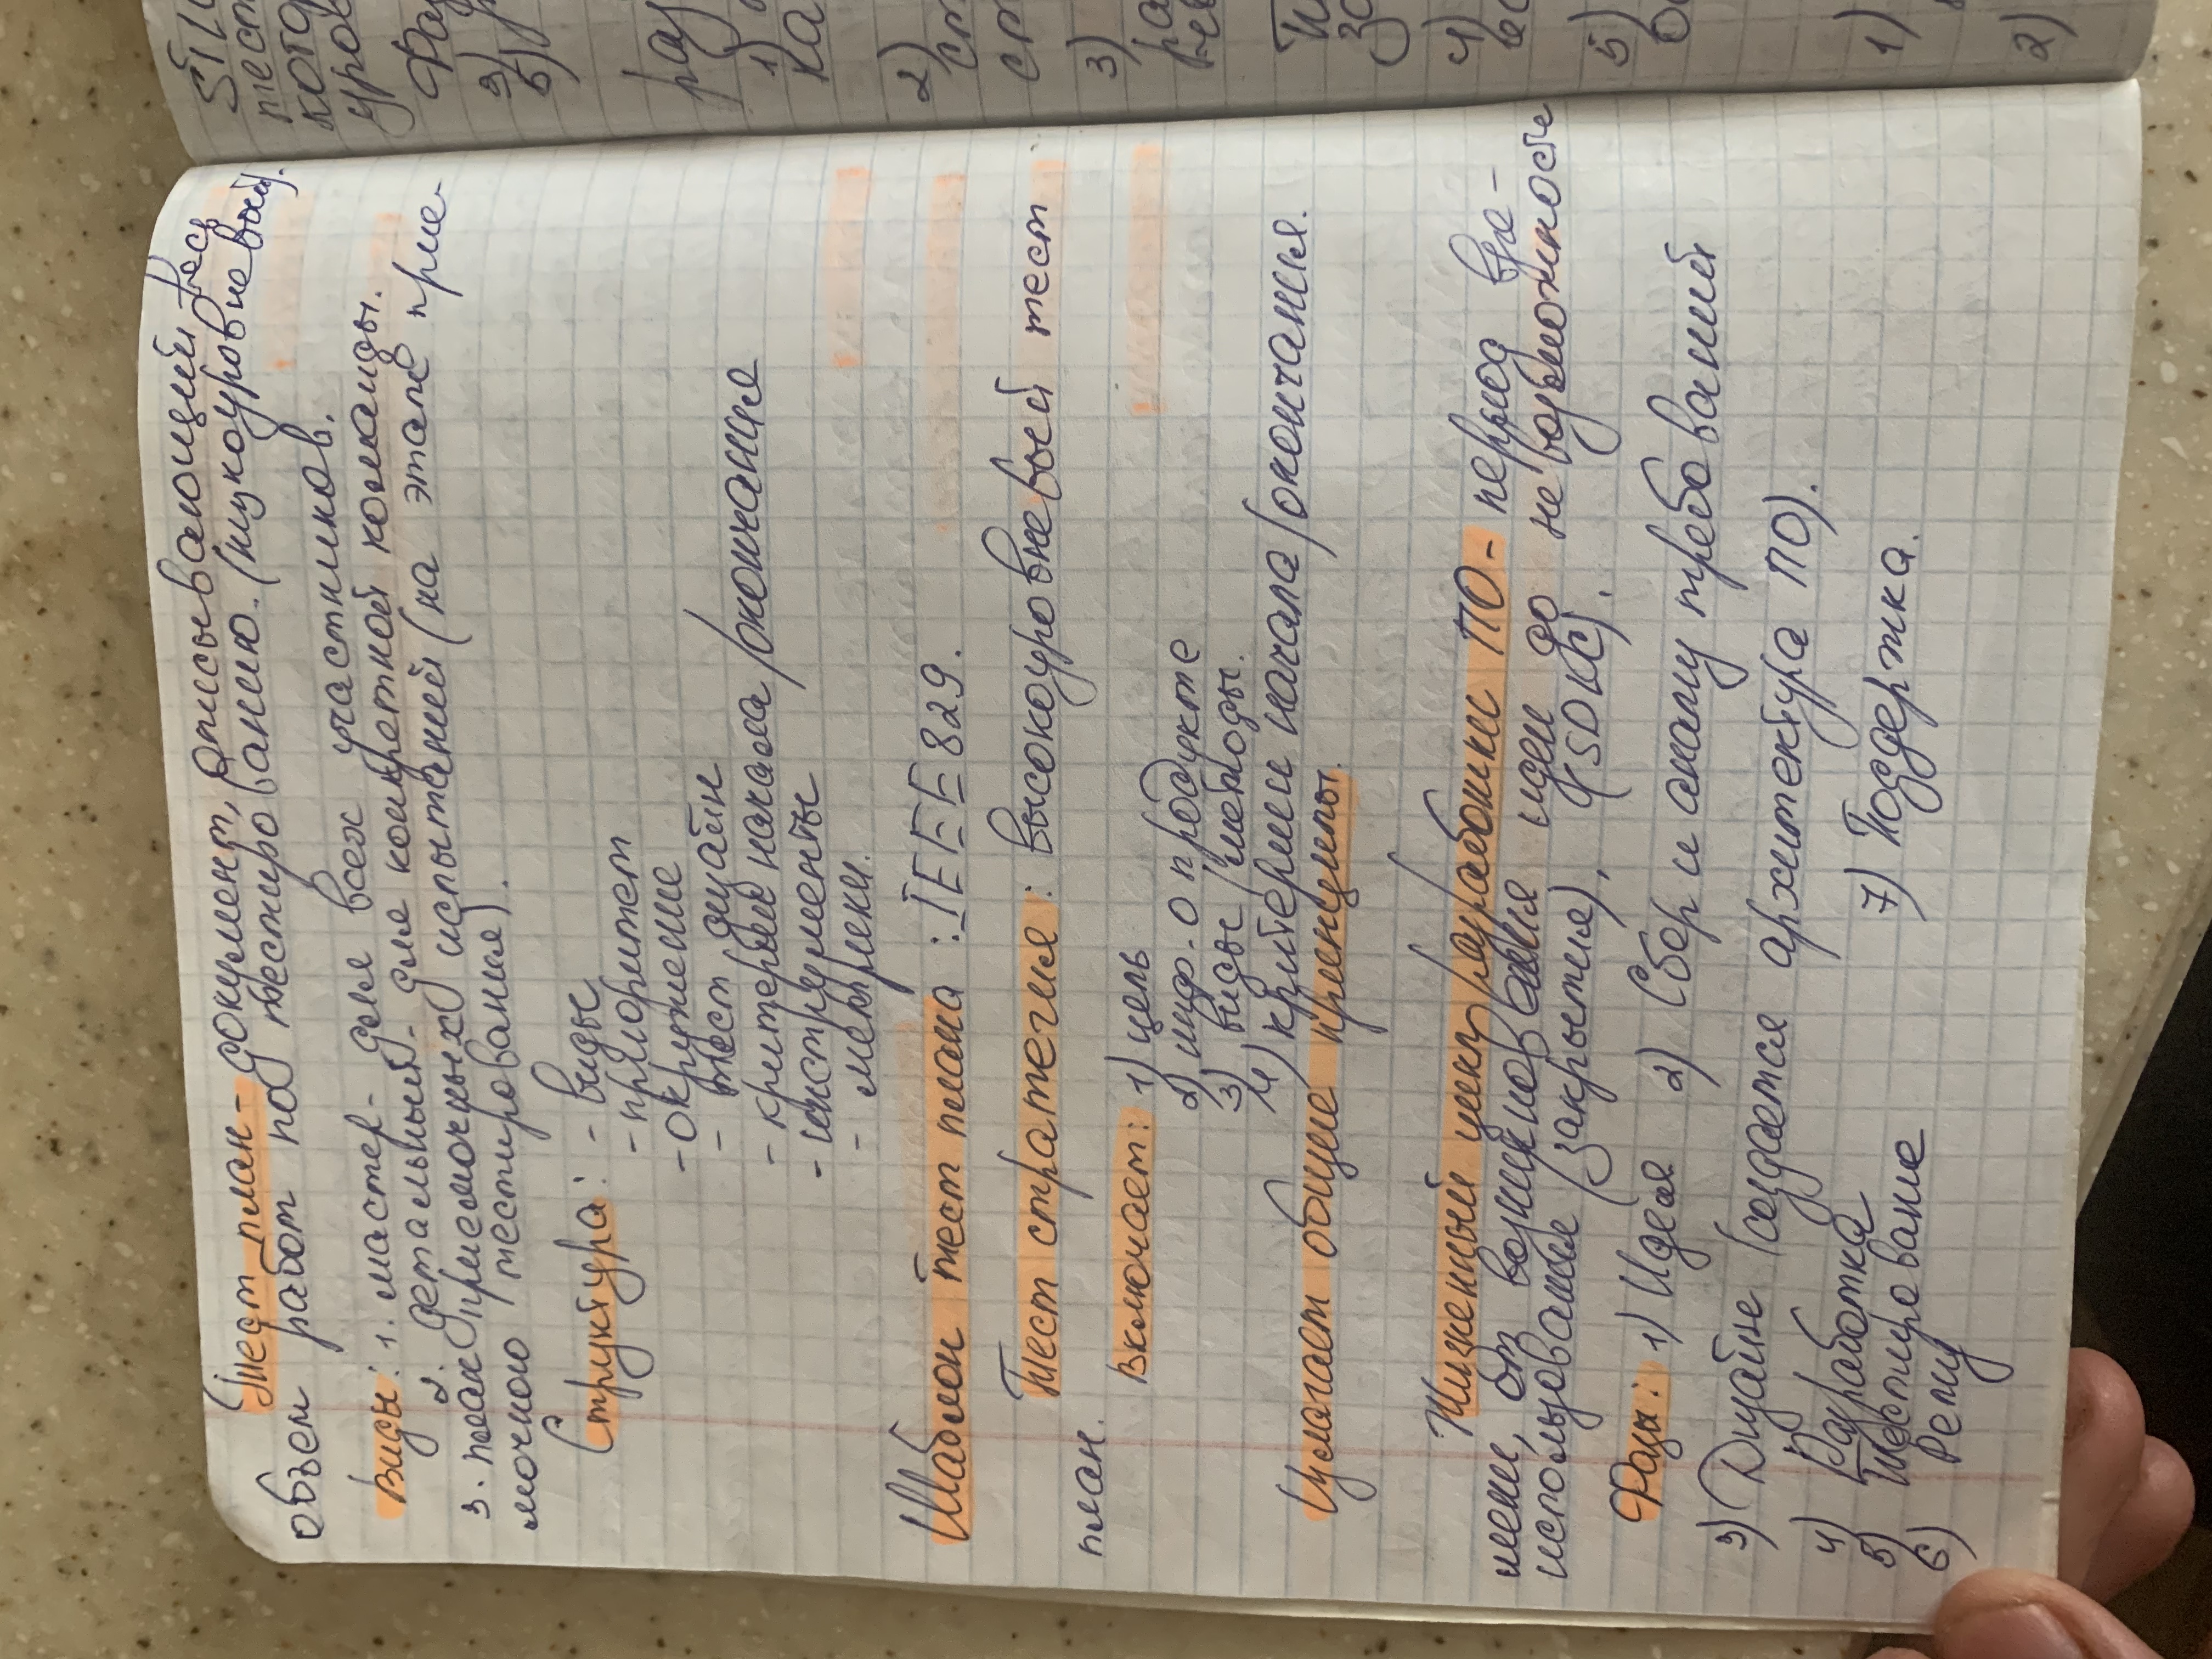 Тест план - документ, описывающий весь
объем работ по тестированию. (низкоуровневый).
Виды: 1. мастер - для всех участников.
2. детальный - для конкретной команды.
3. план приемочных испытаний (на этапе прие-
мочного тестирования).
Структура: - виды
- приоритет
- окружение
- тест дизайн
- критерии начала / окончания
- инструменты
- метрики.
Шаблон тест плана : IEEE 829.
Тест стратегия : высокоуровневый тест
план.
Включает: 1) цель
2) инф. о продукте
3) виды / методы.
4) критерии начала / окончания.
Излагает общие принципы.
Жизненный цикл разработки ПО - период вре-
мени, от возникновения идеи до невозможности
использования (закрытия). (SDLC).
Фазы: 1) Идея 2) Сбор и анализ требований
3) Дизайн (создается архитектура ПО).
4) Разработка
5) Тестирование 7) Поддержка.
6) Релиз
STLC
тест
кото
уров
Фаз
а)
б)
раз
1)
ка
2)
ст
ст
3)
ра
4)
5)
1)
2)